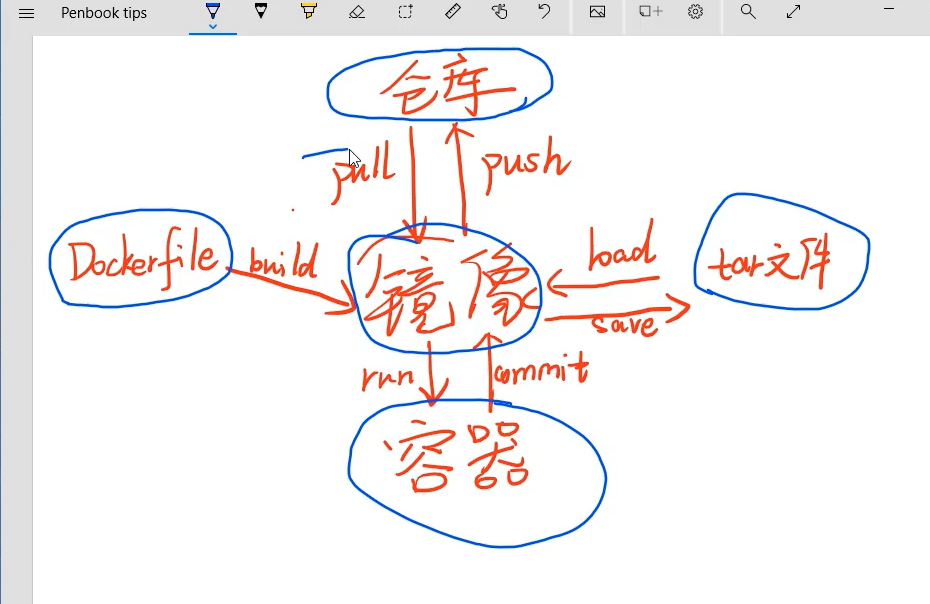 Penbook tips
仓库
pull
push
Dockerfile
build
镜像
load
tar文件
save
run
commit
容器